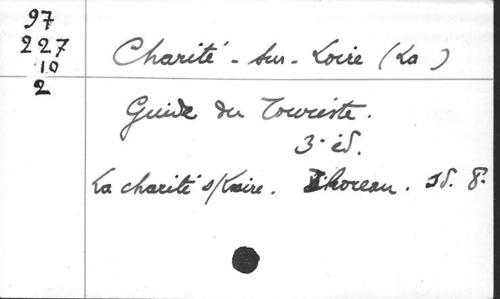 97
227
10
2
Charité-sur-Loire (La)
Guide du Touriste.
3e éd.
La charité s/Loire. Thoreau. sd. 8°.